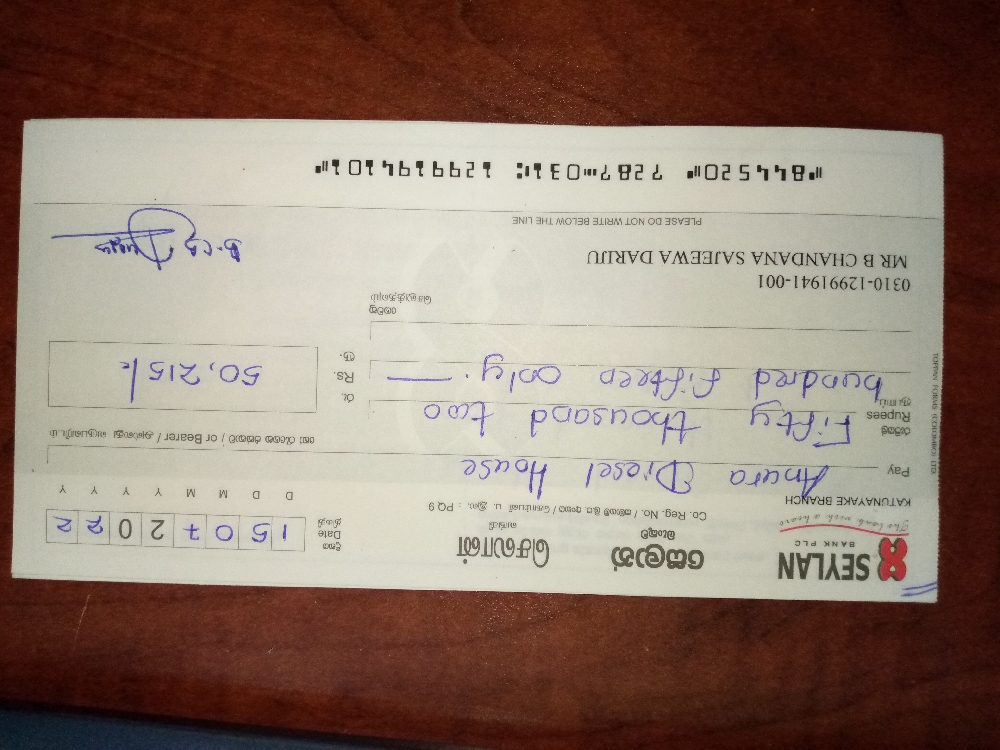 SEYLAN
BANK PLC
The bank with a heart
KATUNAYAKE BRANCH
සෙලාන්
බැංකුව
செலான்
வங்கி
Co. Reg. No. : PQ 9
දිනය
Date
திகதி
1 5 0 7 2 0 2 2
D D M M Y Y Y Y
Pay Anura Diesel House
or Bearer
රුපියල්
Rupees
ரூபாய்
Fifty thousand two
hundred fifteen only.
රු.
Rs.
ரூ.
50,215/=
0310-12991941-001
MR B CHANDANA SAJEEWA DARIJU
PLEASE DO NOT WRITE BELOW THE LINE
⑈844520⑈ 7287⑉031⑆ 1299194101⑈